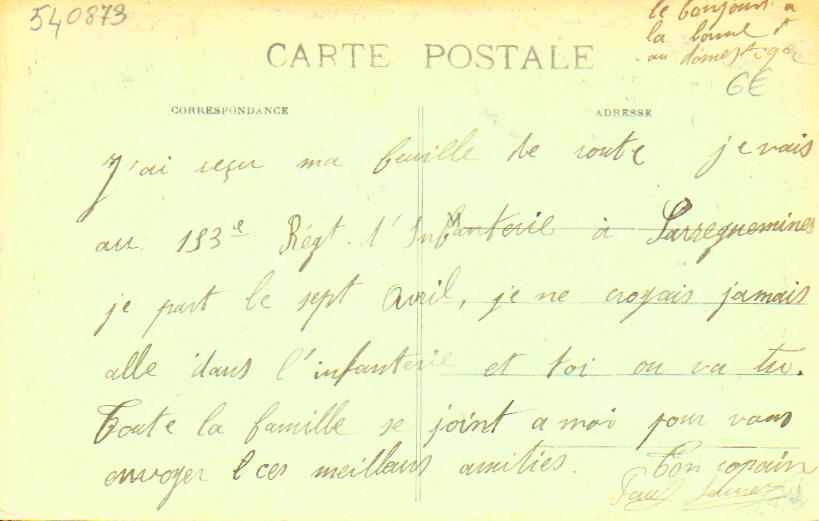 540873
le bonjour a
la bonne et
au domestique
6€
CARTE POSTALE
CORRESPONDANCE
ADRESSE
M
J'ai reçu ma feuille de route je vais
au 153e Régt. d'Infanterie à Sarreguemines
je part le sept Avril, je ne croyais jamais
allé dans l'infanterie et toi ou va tu.
Toute la famille se joint a moi pour vous
envoyer l ces meillaus amities. Ton copain
Paul